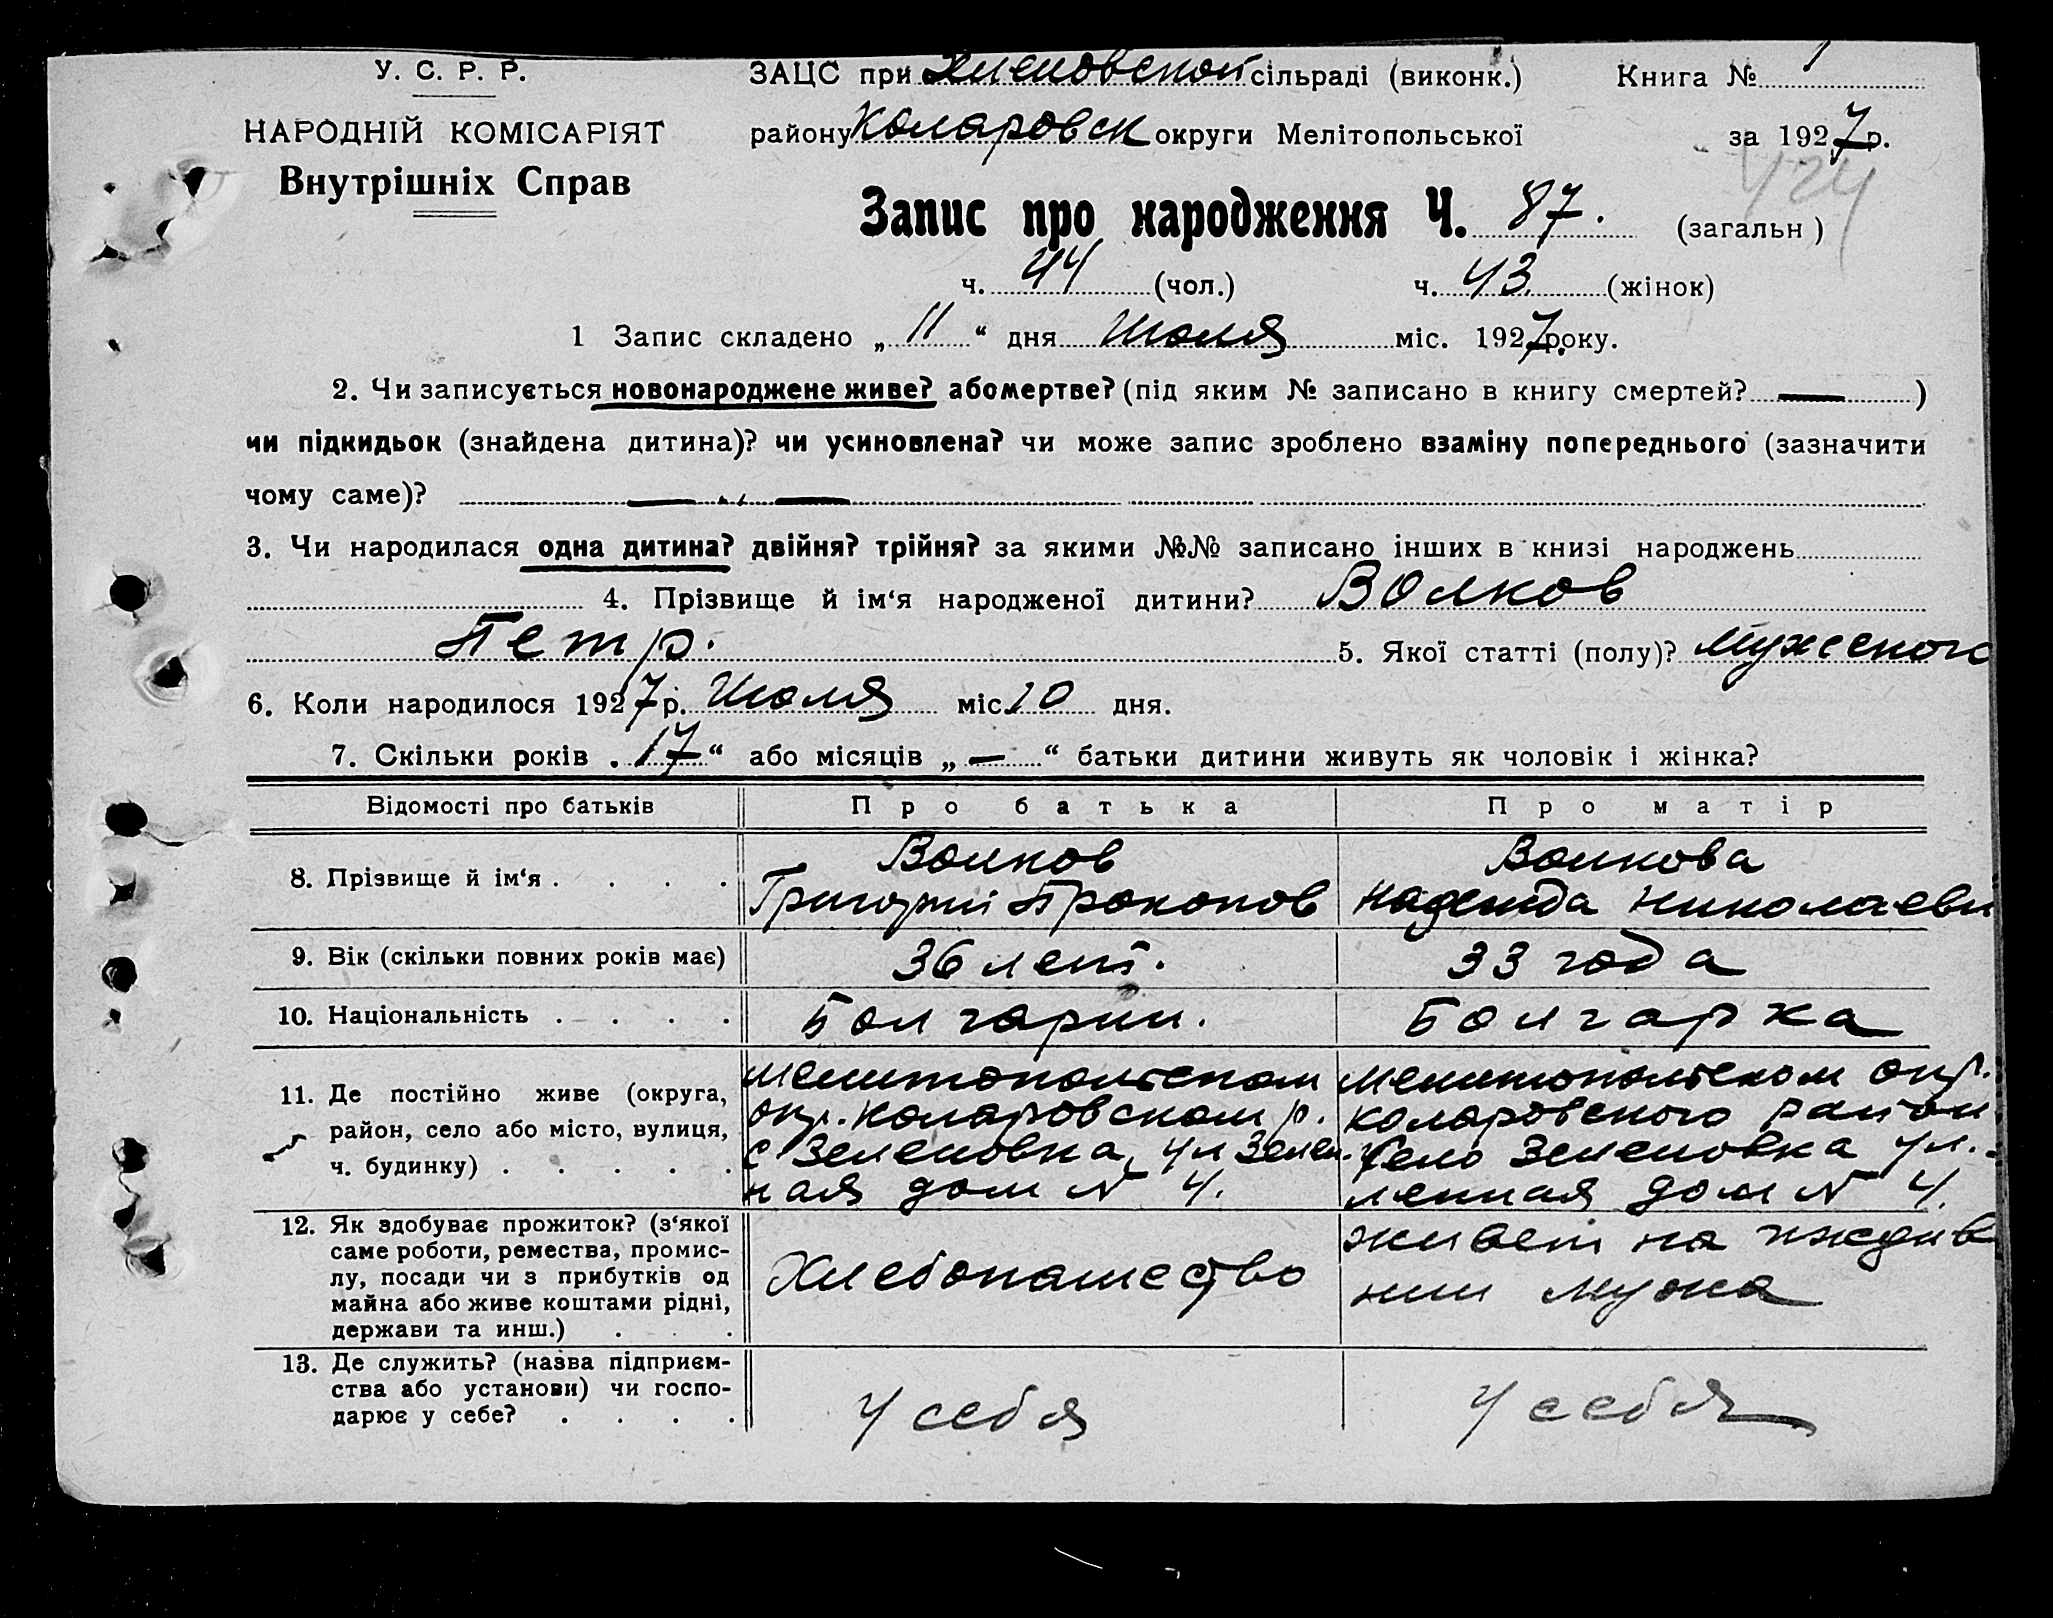 У. С. Р. Р.
НАРОДНІЙ КОМІСАРІЯТ
Внутрішніх Справ
ЗАЦС при сільраді (виконк.) Книга № 1
району Коларовск округи Мелітопольської за 1927 р.
424
Запис про народження Ч. 87. (загальн)
ч. 44 (чол.) ч. 43 (жінок)
1 Запис складено „ 11 “ дня Июля міс. 1927 року.
2. Чи записується новонароджене живе? або мертве? (під яким № записано в книгу смертей? — )
чи підкидьок (знайдена дитина)? чи усиновлена? чи може запис зроблено взаміну попереднього (зазначити
чому саме)? — „ —
3. Чи народилася одна дитина? двійня? трійня? за якими №№ записано інших в книзі народжень
4. Прізвище й ім‘я народженої дитини? Волков
Петр. 5. Якої статті (полу)? Мужского
6. Коли народилося 1927 р. Июля міс. 10 дня.
7. Скільки років „ 17 “ або місяців „ — “ батьки дитини живуть як чоловік і жінка?
Відомості про батьків Про батька Про матір
8. Прізвище й ім‘я . . . . Волков Григорий Прокопов Волкова Надежда Николаевн
9. Вік (скільки повних років має) 36 лет. 33 года
10. Національність . . . . Болгарин. Болгарка
11. Де постійно живе (округа, район, село або місто, вулиця, ч. будинку) . . . . .
Мелитопольском
окр. Коларовском р.
с Зеленовка, ул Зелен.
ная дом N 4.
Мелитопольском окр.
Коларовского район
село Зеленовка ул.
ленная дом N 4.
12. Як здобуває прожиток? (з‘якої
саме роботи, ремества, промис-
лу, посади чи з прибутків од
майна або живе коштами рідні,
держави та инш.) . . .
Хлебопашество
живет на иждив
нии мужа
13. Де служить? (назва підприєм-
ства або установи) чи госпо-
дарює у себе? . . . .
у себя
у себя